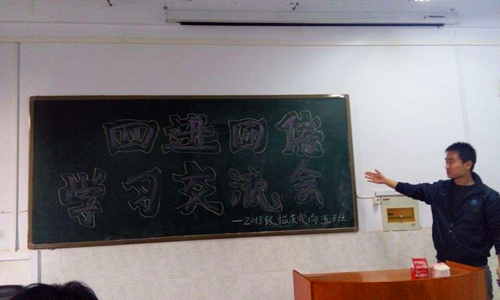 四进四信
学习交流会
—2013级临床定向五班